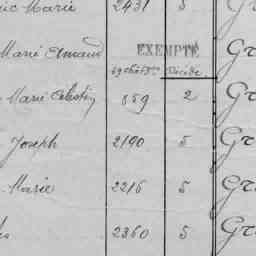 Marie 2431 5 Gr
Marie Amand EXEMPTÉ Gr
Décédé
Marie Célestin 859 2 Gr
Joseph 2190 5 Gr
Marie 2216 5 Gr
2360 5 Gr